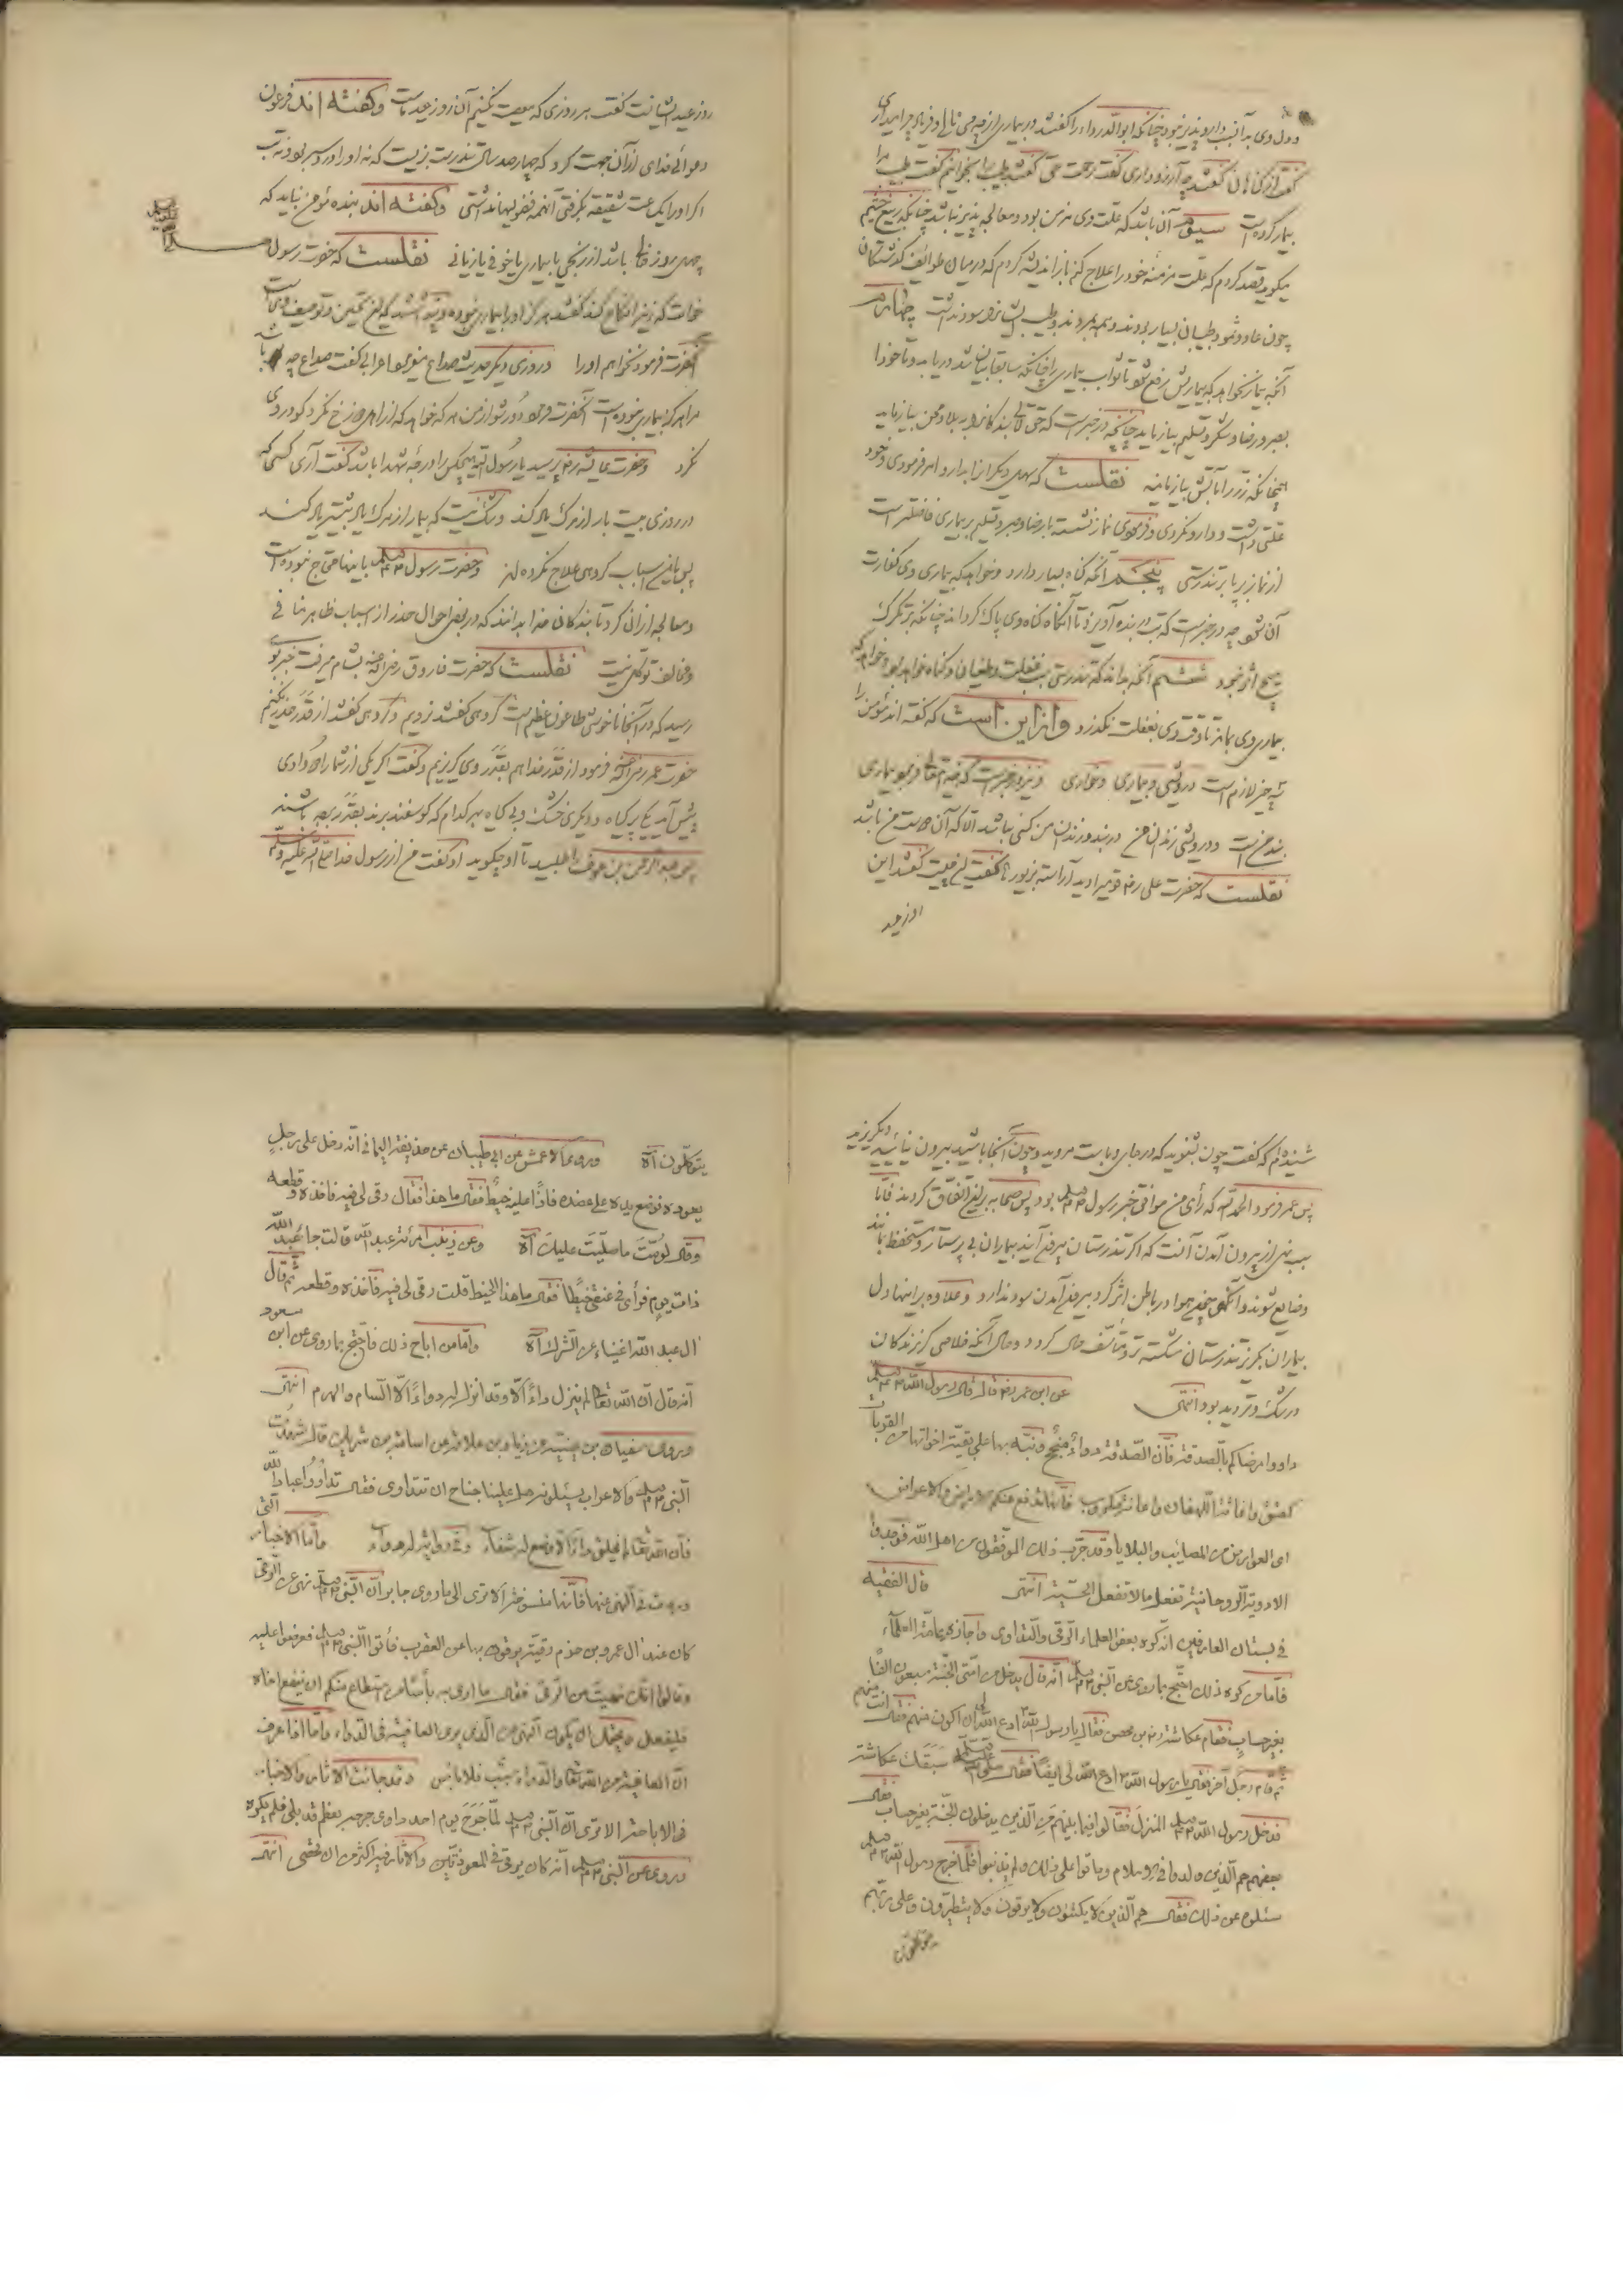 ودل وی به آنب دارو نپذیر بود چنانکه ابوالدرداء را گفتند در بیماری از چه می نالی
گفت از گناهان گفتند چه آرزو داری گفت رحمت حق گفتند طبیب را بخوانیم گفت طبیب مرا
بیمار کرده است سیوم آن باشد که علت وی مزمن بود و معالجه پذیر نباشد چنانکه ربیع خثیم
میگوید قصد کردم که علت مزمنه خود را علاج کنم باز اندیشه کردم که در میان طوائف گذشتگان
چون عاد و ثمود طبیبان بسیار بودند و همه بمردند و طب ایشان سود نداشت چهارم
آنکه بیمار نخواهد که بیماریش رفع شود تا ثواب بیماری را چنانکه سابقا بیان شد دریابد و تا خود را
بصبر و رضا و شکر و تسلیم بیازماید چنانچه در خبر است که حق تعالی بندگانرا به بلا و محن بیازماید
همچنانکه زر را بآتش بیازمایند نقلست که سهل دیگرانرا بدارو امر فرمودی و خود
علتی داشت و دارو نکردی و فرمودی نماز نشسته با رضا و صبر و تسلیم بر بیماری فاضلتر است
از نماز بر پا بر تندرستی پنجم آنکه گناه بسیار دارد و خواهد که بیماری وی کفارت
آن شود چه در خبر است که تب در بنده آویزد تا آنگاه که از گناه وی پاک گرداند چنانکه بر تگرگ
هیچ اثر نبود ششم آنکه بداند که تندرستی سبب غفلت و طغیان و گناه خواهد بود و خواهد که
بیماری وی بماند تا وقت وی بغفلت نگذرد و از این است که گفته اند مؤمن را
سه چیز لازم است درویشی و بیماری و خواری و نیز در خبر است که خدا تعالی فرمود بیماری
بند من است و درویشی زندان من در بند و زندان من کسی نباشد الا که آن دوست من باشد
نقلست که حضرت علی رض قومی را دید آراسته بزیور گفت این چیست گفتند این
روز عید
روز عید ایشانست گفت هر روزی که معصیت نکنیم آن روز عید ماست و گفته اند فرعون
دعوائی خدای از آن جهت کرد که چهارصد سال تندرست بزیست که نه او را درد سر بود و نه تب
اگر او را یک ساعت شقیقه بگرفتی آنهمه فضولیها نداشتی و گفته اند بنده مؤمن نباید که
چهل روز خالی باشد از رنجی یا بیماری یا خوفی یا زیانی نقلست که حضرت رسول
صلی الله علیه وسلم
خواست که زنی را نکاح کند گفتند هرگز او را بیماری نبوده و پنداشتند که این تحسین و توصیف وی است
آنحضرت فرمود نخواهم او را و روزی دیگر حدیث صداع میفرمود اعرابی گفت صداع چه باشد
مرا هرگز بیماری نبوده است آنحضرت فرمود دور شو از من هر که خواهد که از اهل دوزخ نگرد گو در وی
نگرد و حضرت عایشه رض پرسید یا رسول الله هیچکس را درجه شهدا باشد گفت آری کسی که
در روزی بیست بار از مرگ یاد کند و شک نیست که بیمار از مرگ یاد بیشتر کند
پس باین اسباب گروهی علاج نکرده اند و حضرت رسول صلعم باینها محتاج نبوده است
و معالجه از آن کرد تا بندگان خدا بدانند که در بعض احوال حذر از اسباب ظاهر منافی
و مخالف توکل نیست نقلست که حضرت فاروق رضی الله عنه بشام میرفت خبر بوی
رسید که در آنجا ناخوشی طاعون عظیم است گروهی گفتند نرویم و گروهی گفتند از قدر حذر نکنیم
حضرت عمر رضی الله عنه فرمود از قدر خدا هم بقدر وی گریزیم و گفت اگر یکی از شما را دو وادی
پیش آید یکی پر گیاه و دیگری خشک و بی گیاه بهر کدام که گوسفند برند بقدر رب باشند
پس عبد الرحمن بن عوف را طلبید تا او چه گوید او گفت من از رسول خدا صلی الله علیه وسلم
شنیده ام که گفت چون بشنوید که در جای وبا است مروید و چون آنجا باشید بیرون نیائید و مگریزید
پس عمر فرمود الحمد لله که رأی من موافق خبر رسول صلعم بود پس صحابه بر این اتفاق کردند فاما
سبب نهی از بیرون آمدن آنست که اگر تندرستان بیرون آیند بیماران بی پرستار و محتفظ بمانند
و ضایع شوند و آنگه چون هوا در باطن اثر کرد بیرون آمدن سود ندارد و علاوه بر اینها دل
بیماران بگریز تندرستان شکسته تر و متأسف حال گردد و حال آنکه خلاصی گریزندگان
در شک و تردید بود انتهی عن ابن عمر رض قال قال رسول الله صلعم
داووا مرضاکم بالصدقة فان الصدقة دواء منجح ونبه بها علی بقیة اخواتها من القربات
کعتق واغاثة اللهفان واعانة مکروب فانها تدفع عنکم الامراض والاعراض
ای العوارض من المصایب والبلایا وقد جرب ذلك الموفقون من اهل الله فوجدوا
الادویة الروحانیة تفعل ما لا تفعل الحسیة انتهی قال الفقیه
فی بستان العارفین انه کره بعض العلماء الرقی والتداوی واجازه عامة العلماء
فاما من کره ذلك احتج بما روی عن النبی صلعم انه قال یدخل من امتی الجنة سبعون الفا
بغیر حساب فقام عکاشة رض بن محصن فقال یا رسول الله ادع الله لی ان اکون منهم فقال انت منهم
ثم قام رجل آخر فقال یا رسول الله ادع الله لی ایضا فقال صلعم سبقك عکاشة
فدخل رسول الله صلعم المنزل فقالوا فیما بینهم من الذین یدخلون الجنة بغیر حساب فقال
بعضهم هم الذین ولدوا فی الاسلام وماتوا علی ذلك ولم یذنبوا فلما خرج رسول الله صلعم
سئلوه عن ذلك فقال هم الذین لا یکتوون ولا یرقون ولا یتطیرون وعلی ربهم
یتوکلون
یتوکلون آه وروی الاعمش عن ابی ظبیان عن حذیفة الیمانی انه دخل علی رجل
یعوده فوضع یده علی عضده فاذا علیه خیط فقال ما هذا فقال رقی لی فیه فاخذه وقطعه
وقال لو مت ما صلیت علیك آه وعن زینب امرأة عبد الله قالت جاء عبد الله
ذات یوم فرأی فی عنقی خیطا فقال ما هذا الخیط قلت رقی لی فیه فاخذه وقطعه ثم قال
ال عبد الله اغنیاء عن الشرك آه واما من اباح ذلك فاحتج بما روی عن ابن مسعود
انه قال ان الله تعالی لم ینزل داء الا وقد انزل له دواء الا السام والهرم انتهی
وروی سفیان بن عیینة عن زیاد بن علاقة عن اسامة بن شریك قال شهدت
النبی صلعم والاعراب یسئلونه هل علینا جناح ان نتداوی فقال تداووا عباد الله
فان الله تعالی لم یخلق داء الا وضع له شفاء وفی روایة له دواء واما الاخبار التی
وردت فی النهی عنها فانها منسوخة الا تری الی ما روی جابر ان النبی صلعم نهی عن الرقی
کان عند ال عمرو بن حزم رقیة یرقون بها من العقرب فأتوا النبی صلعم فعرضوا علیه
وقالوا انك نهیت عن الرقی فقال ما اری به بأسا من استطاع منکم ان ینفع اخاه
فلیفعل ویحتمل ان یکون النهی عن الذی یری العافیة فی الدواء واما اذا عرف
ان العافیة من الله تعالی والدواء سبب فلا بأس وقد جائت الاثار والاخبار
فی الاباحة الا تری ان النبی صلعم لما جرح یوم احد داوی جرحه بعظم قد بلی فلم یکره
وروی عن النبی صلعم انه کان یرقی فی المعوذتین والاثار فیه اکثر من ان تحصی انتهی